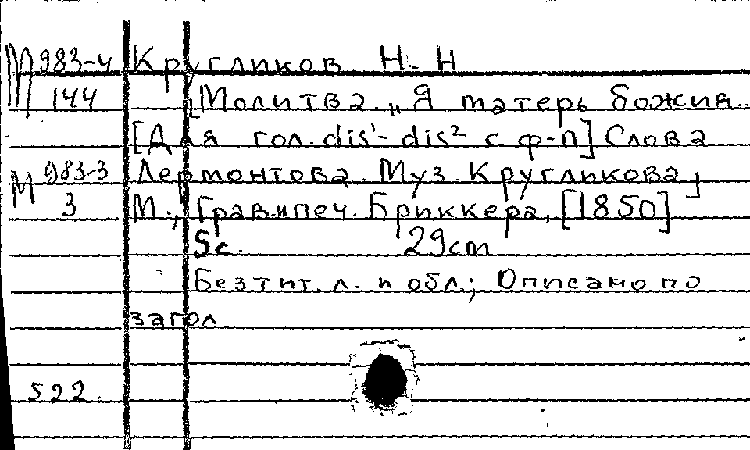 М 983-4 Кругликов Н. Н
144 [Молитва. „Я матерь божия
[Для гол. dis¹- dis² с ф-п] Слова
М 983-3 Лермонтова. Муз. Кругликова]
3 М., Грав. и печ. Бриккера, [1850]
5с. 29cm
Без тит. л. и обл.; Описано по
загол
522.